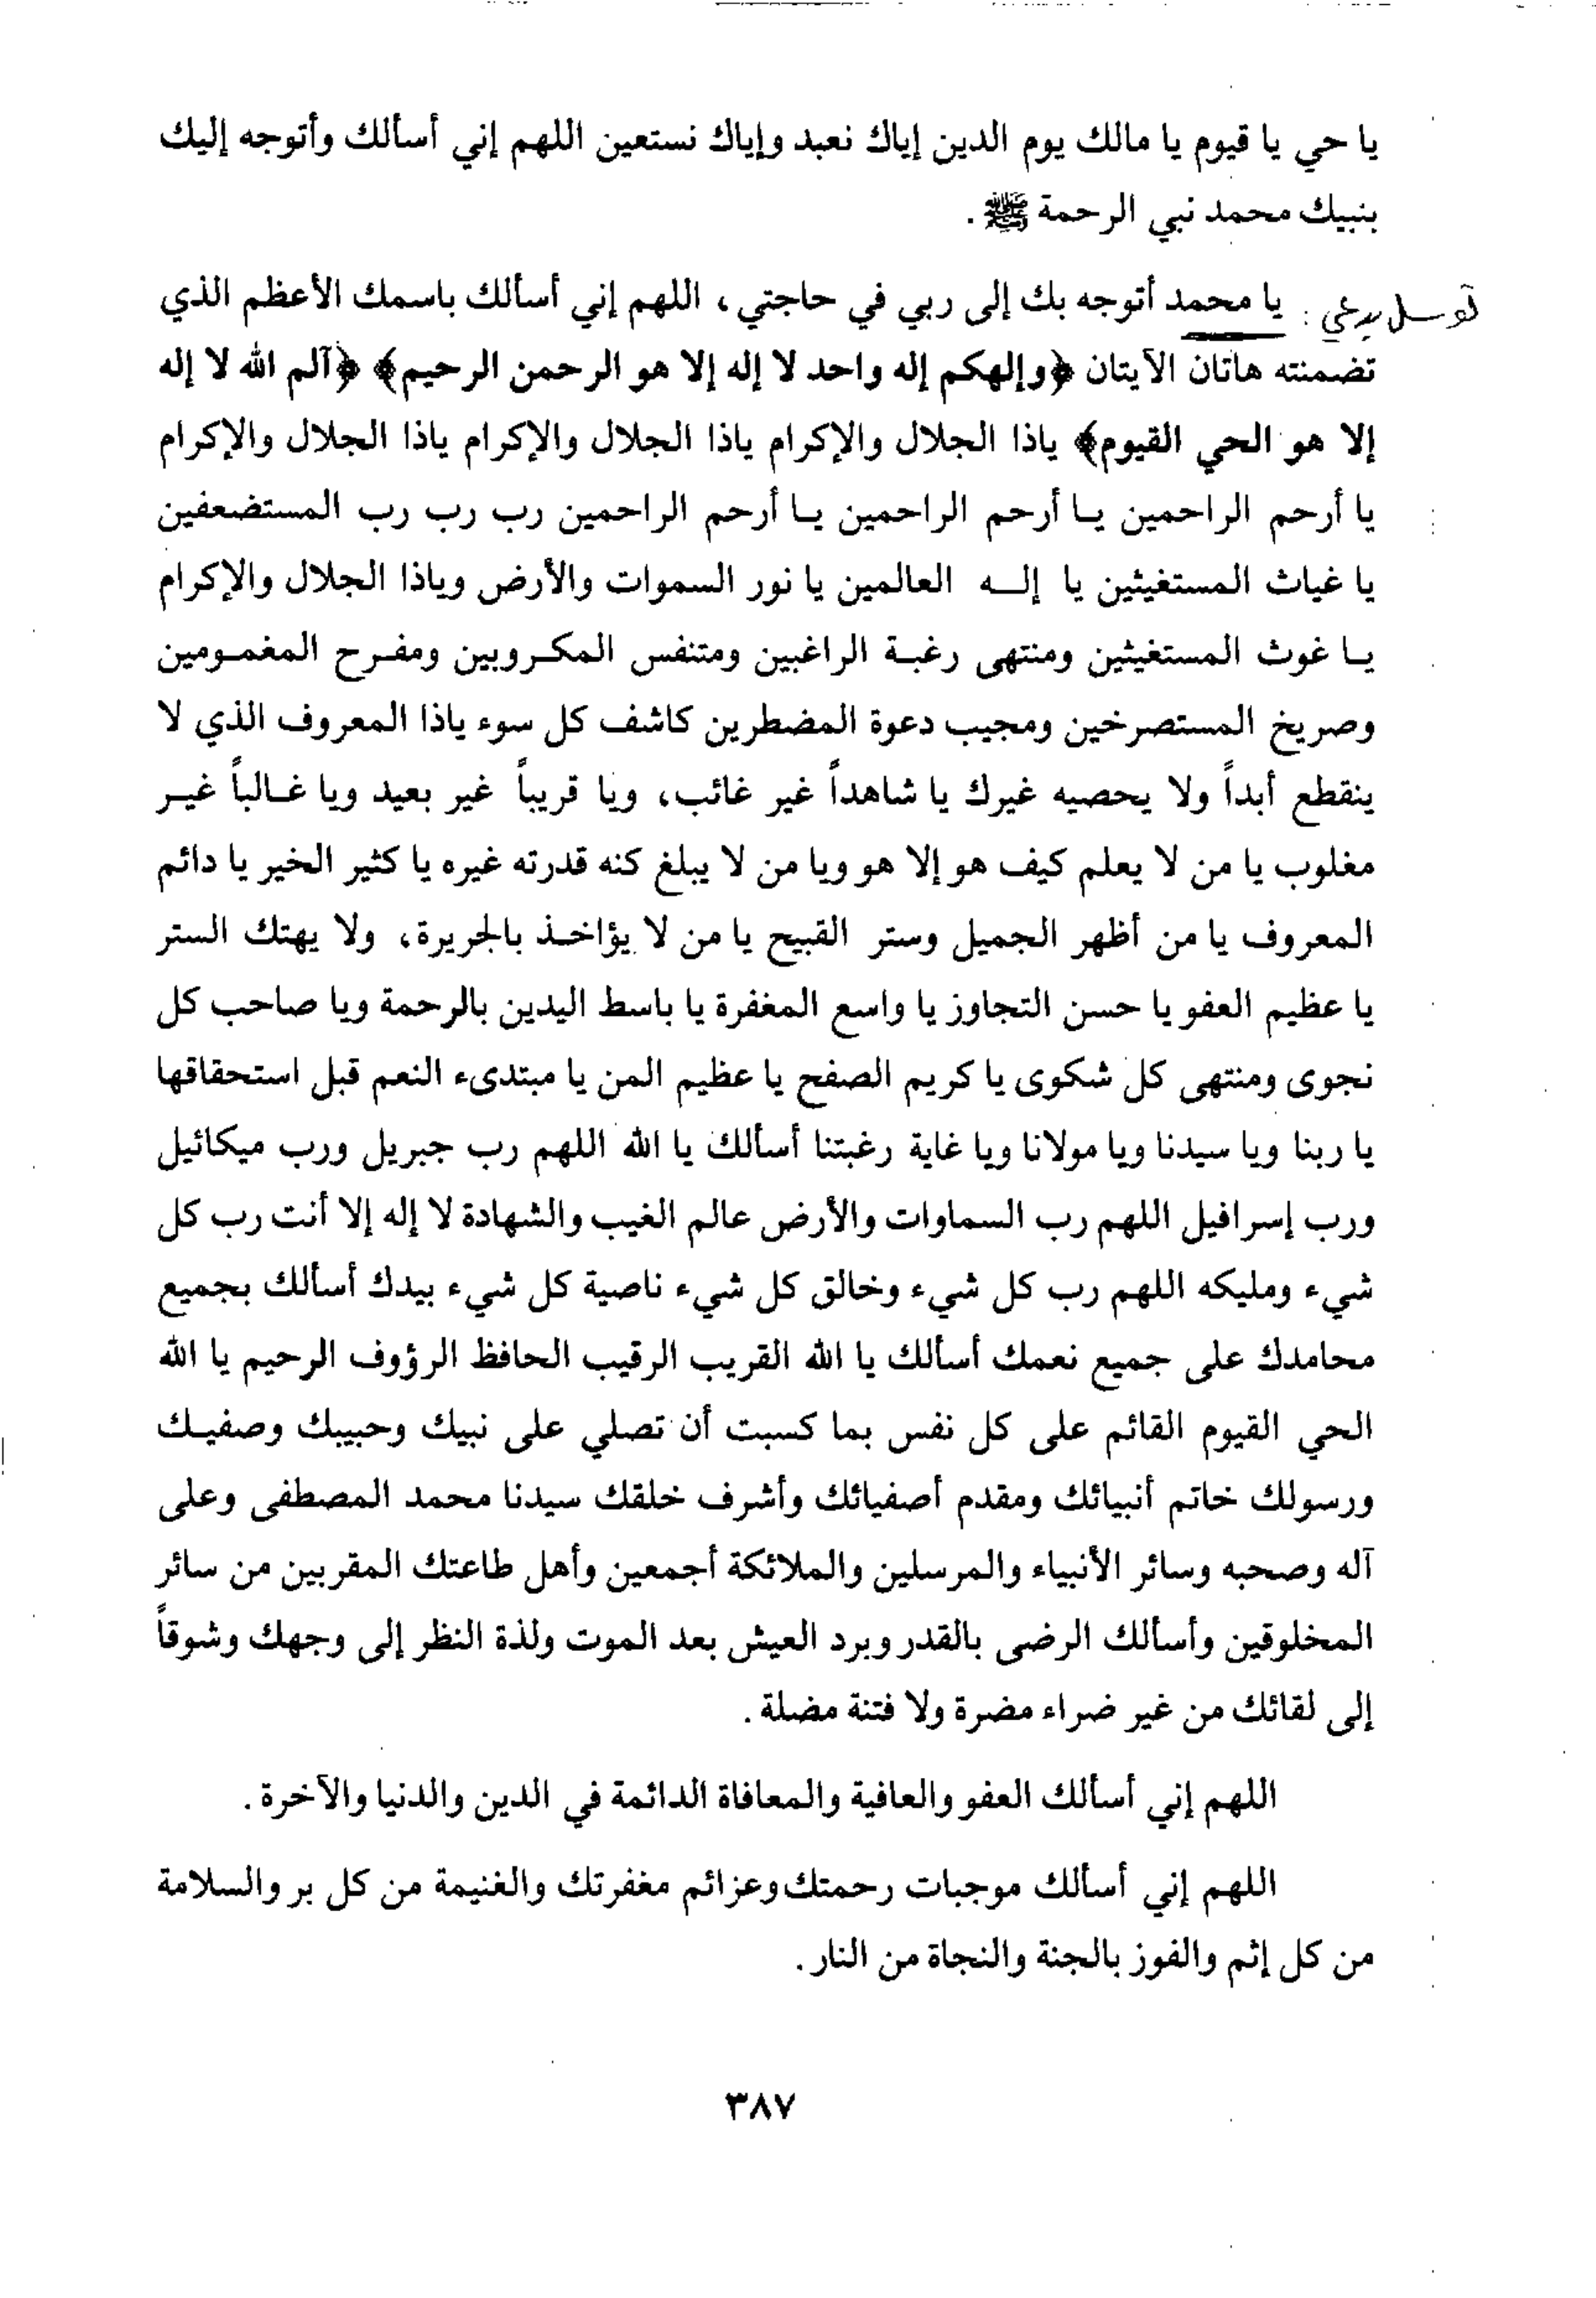 يا حي يا قيوم يا مالك يوم الدين إياك نعبد وإياك نستعين اللهم إني أسألك وأتوجه إليك
بنبيك محمد نبي الرحمة ﷺ .
توسل بدعي : يا محمد أتوجه بك إلى ربي في حاجتي ، اللهم إني أسألك باسمك الأعظم الذي
تضمنته هاتان الآيتان ﴿وإلهكم إله واحد لا إله إلا هو الرحمن الرحيم﴾ ﴿آلم الله لا إله
إلا هو الحي القيوم﴾ ياذا الجلال والإكرام ياذا الجلال والإكرام ياذا الجلال والإكرام
يا أرحم الراحمين يـا أرحم الراحمين يـا أرحم الراحمين رب رب رب المستضعفين
يا غياث المستغيثين يا إلـــه العالمين يا نور السموات والأرض وياذا الجلال والإكرام
يـا غوث المستغيثين ومنتهى رغبـة الراغبين ومتنفس المكـروبين ومفـرح المغمـومين
وصريخ المستصرخين ومجيب دعوة المضطرين كاشف كل سوء ياذا المعروف الذي لا
ينقطع أبداً ولا يحصيه غيرك يا شاهداً غير غائب، ويا قريباً غير بعيد ويا غـالباً غيـر
مغلوب يا من لا يعلم كيف هو إلا هو ويا من لا يبلغ كنه قدرته غيره يا كثير الخير يا دائم
المعروف يا من أظهر الجميل وستر القبيح يا من لا يؤاخـذ بالجريرة، ولا يهتك الستر
يا عظيم العفو يا حسن التجاوز يا واسع المغفرة يا باسط اليدين بالرحمة ويا صاحب كل
نجوى ومنتهى كل شكوى يا كريم الصفح يا عظيم المن يا مبتدىء النعم قبل استحقاقها
يا ربنا ويا سيدنا ويا مولانا ويا غاية رغبتنا أسألك يا الله اللهم رب جبريل ورب ميكائيل
ورب إسرافيل اللهم رب السماوات والأرض عالم الغيب والشهادة لا إله إلا أنت رب كل
شيء ومليكه اللهم رب كل شيء وخالق كل شيء ناصية كل شيء بيدك أسألك بجميع
محامدك على جميع نعمك أسألك يا الله القريب الرقيب الحافظ الرؤوف الرحيم يا الله
الحي القيوم القائم على كل نفس بما كسبت أن تصلي على نبيك وحبيبك وصفيـك
ورسولك خاتم أنبيائك ومقدم أصفيائك وأشرف خلقك سيدنا محمد المصطفى وعلى
آله وصحبه وسائر الأنبياء والمرسلين والملائكة أجمعين وأهل طاعتك المقربين من سائر
المخلوقين وأسألك الرضى بالقدر وبرد العيش بعد الموت ولذة النظر إلى وجهك وشوقاً
إلى لقائك من غير ضراء مضرة ولا فتنة مضلة .
اللهم إني أسألك العفو والعافية والمعافاة الدائمة في الدين والدنيا والآخرة .
اللهم إني أسألك موجبات رحمتك وعزائم مغفرتك والغنيمة من كل بر والسلامة
من كل إثم والفوز بالجنة والنجاة من النار .
٣٨٧